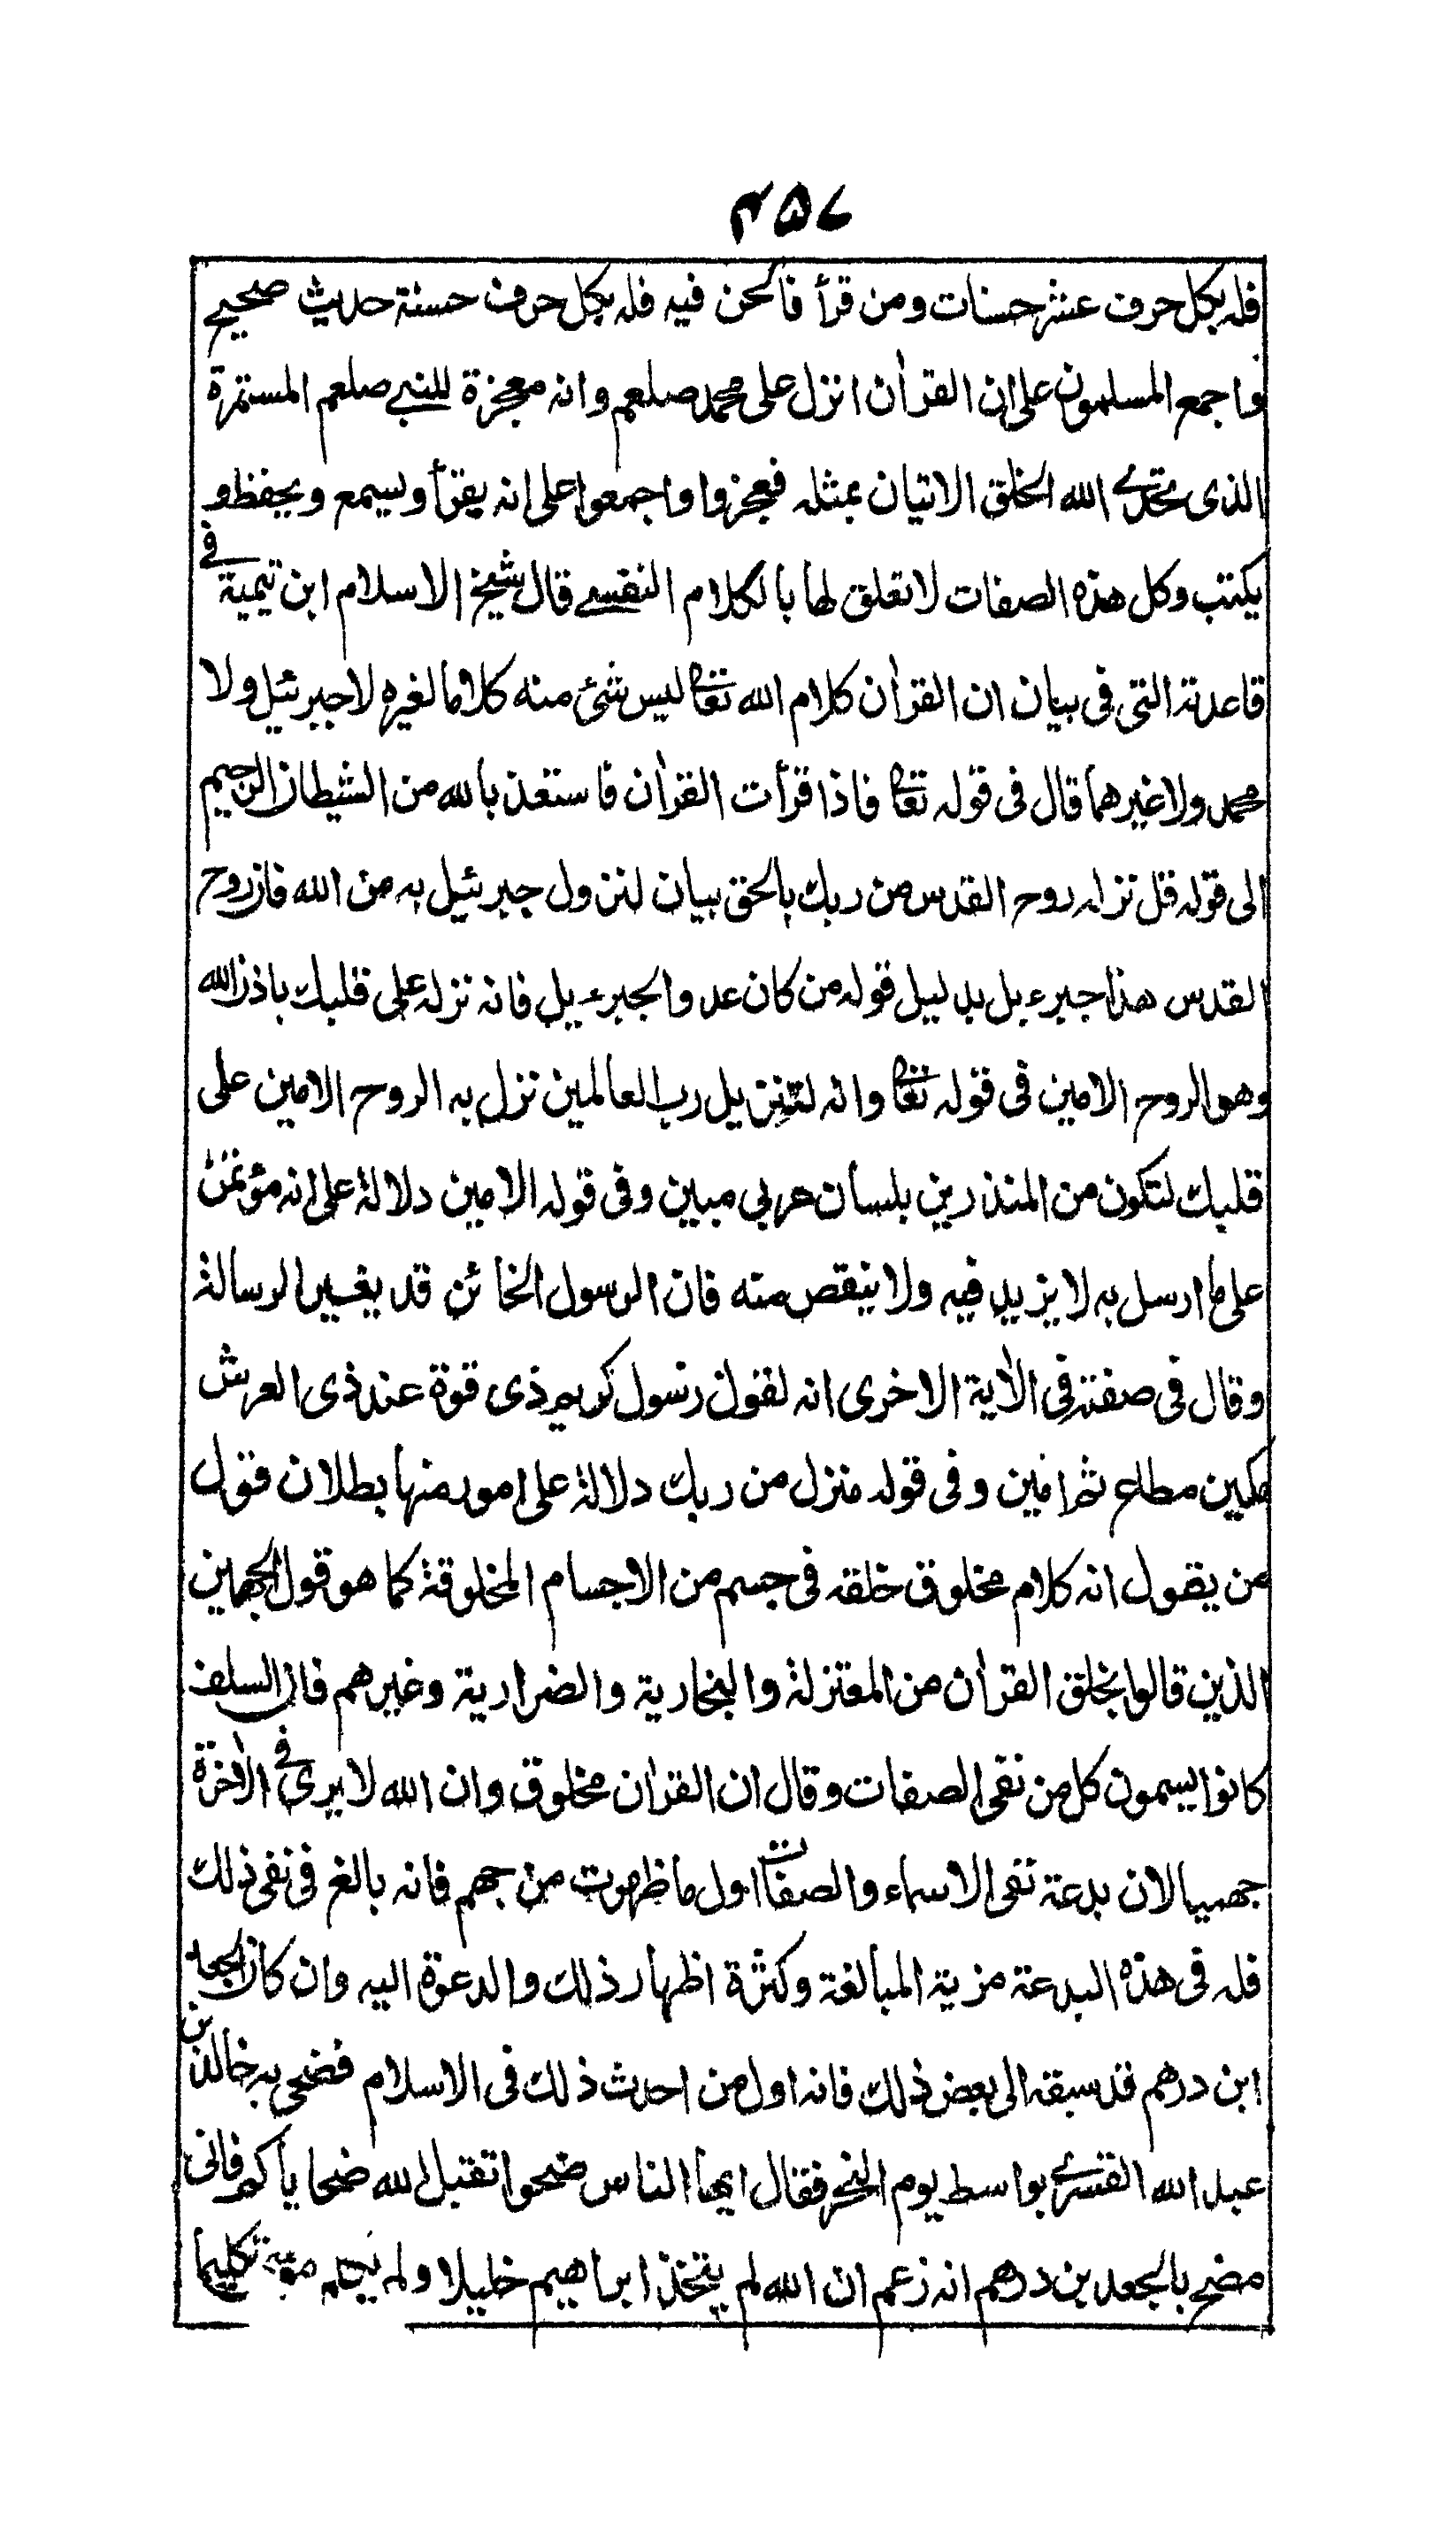 ۴۵۷
فله بكل حرف عشر حسنات ومن قرأ فالحن فيه فله بكل حرف حسنة حديث صحيح
واجمع المسلمون على ان القراٰن انزل على محمد صلعم وانه معجزة للنبي صلعم المستمرة
الذى تحدے الله الخلق الاتيان بمثله فعجزوا واجمعوا على انه يقرأ ويسمع ويحفظ و
يكتب وكل هذه الصفات لا تعلق لها بالكلام النفسے قال شيخ الاسلام ابن تيمية فے
قاعدته التى فى بيان ان القراٰن كلام الله تعالٰى ليس شئ منه كلاما لغيره لا جبرئيل ولا
محمد ولا غيرهما قال فى قوله تعالٰى فاذا قرأت القراٰن فاستعذ بالله من الشيطان الرجيم
الى قوله قل نزله روح القدس من ربك بالحق بيان لنزول جبرئيل به من الله فان روح
القدس هذا جبرءيل بدليل قوله من كان عدوا لجبرءيل فانه نزله على قلبك باذن الله
وهو الروح الامين فى قوله تعالٰى وانه لتنزيل رب العالمين نزل به الروح الامين على
قلبك لتكون من المنذرين بلسان عربي مبين وفى قوله الامين دلالة على انه مؤتمن
على ما ارسل به لا يزيد فيه ولا ينقص منه فان الرسول الخائن قد يغير الرسالة
وقال فى صفته فى الاٰية الاخرى انه لقول رسول كريم ذى قوة عند ذى العرش
مكين مطاع ثم امين وفى قوله منزل من ربك دلالة على امور منها بطلان قول
من يقول انه كلام مخلوق خلقه فى جسم من الاجسام المخلوقة كما هو قول الجهمين
الذين قالوا بخلق القراٰن من المعتزلة والنجارية والضرارية وغيرهم فان السلف
كانوا يسمون كل من نفى الصفات وقال ان القراٰن مخلوق وان الله لا يرى فے الاٰخرة
جهميا لان بدعة نفى الاسماء والصفات اول ما ظهرت من جهم فانه بالغ فى نفى ذلك
فله فى هذه البدعة مزية المبالغة وكثرة اظهار ذلك والدعوة اليه وان كان الجعد
ابن درهم قد سبقه الى بعض ذلك فانه اول من احدث ذلك فى الاسلام فضحى به خالد بن
عبد الله القسرے بواسط يوم النحر فقال ايها الناس ضحوا تقبل الله ضحاياكم فانى
مضح بالجعد بن درهم انه زعم ان الله لم يتخذ ابراهيم خليلا ولم يكلم موسى تكليما